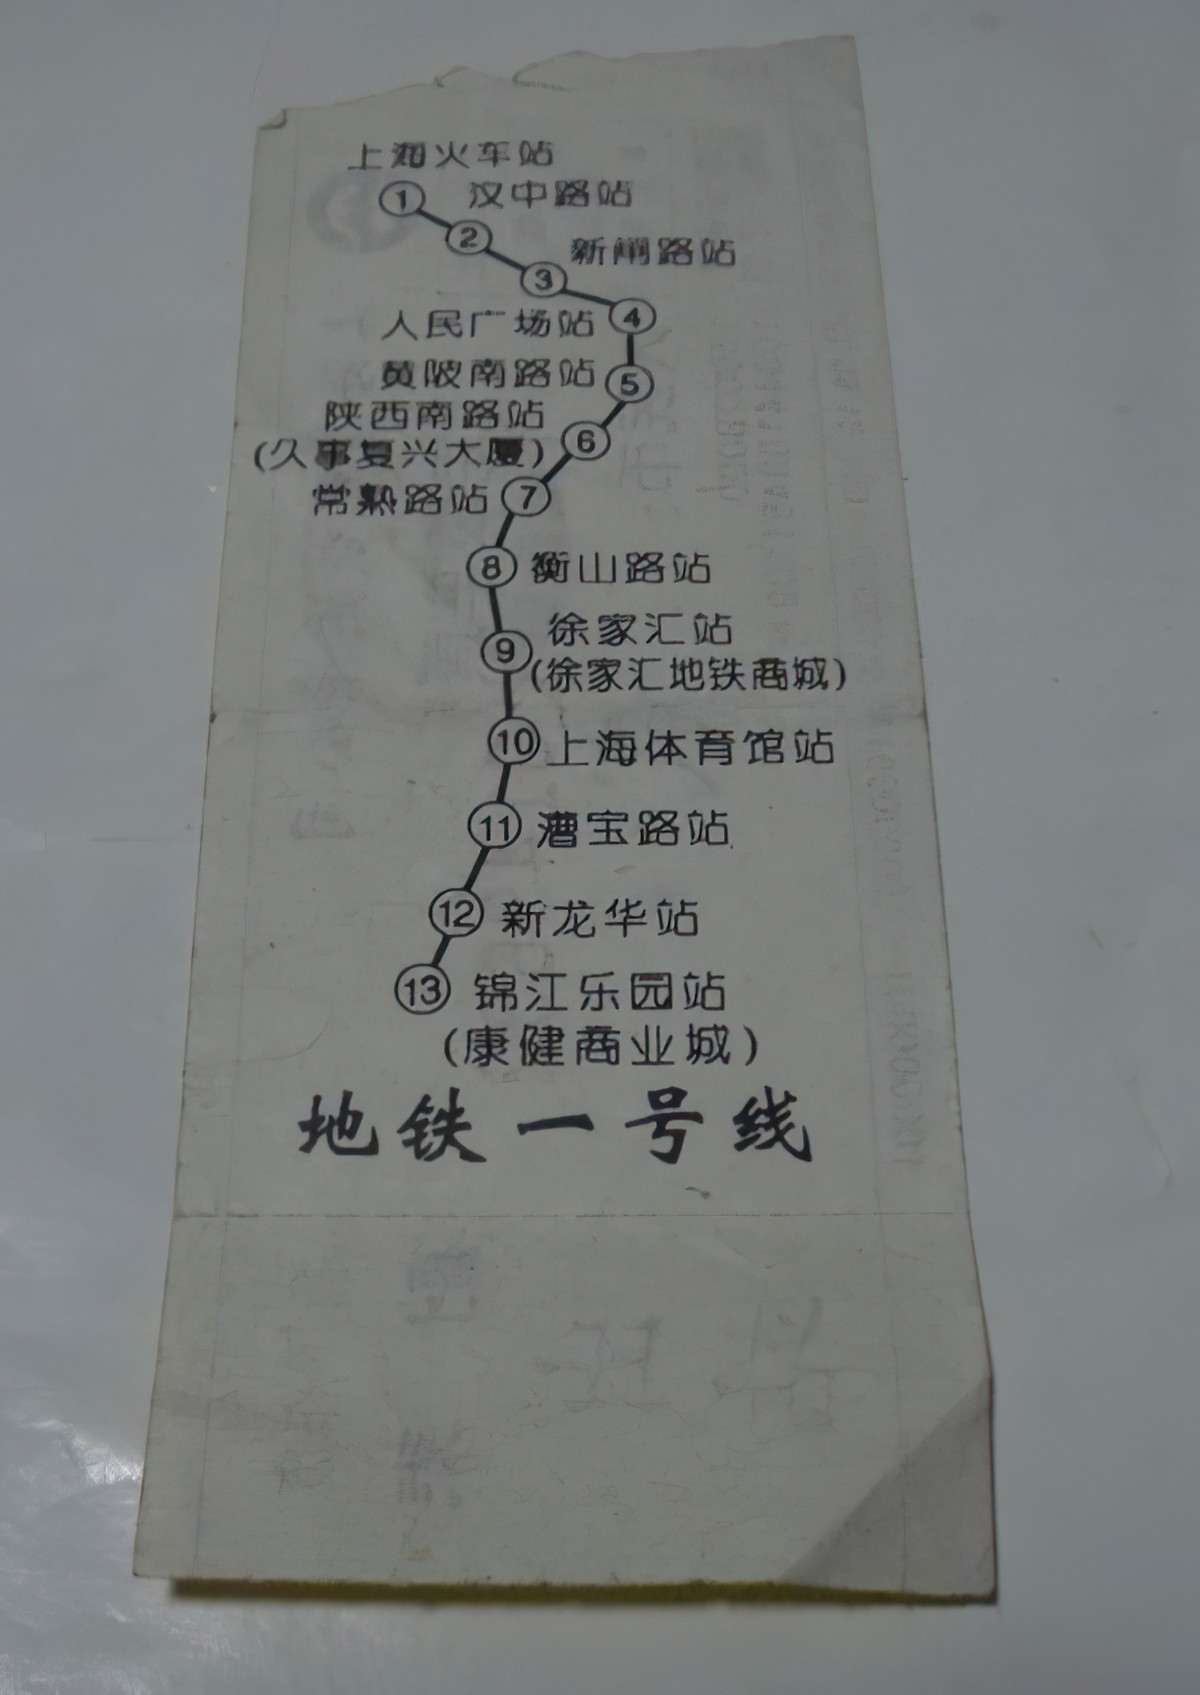 上海火车站
① 汉中路站
②
新闸路站
③
人民广场站 ④
黄陂南路站 ⑤
陕西南路站
⑥
(久事复兴大厦)
常熟路站 ⑦
⑧ 衡山路站
徐家汇站
⑨
(徐家汇地铁商城)
⑩ 上海体育馆站
⑪ 漕宝路站
⑫ 新龙华站
⑬ 锦江乐园站
(康健商业城)
地铁一号线